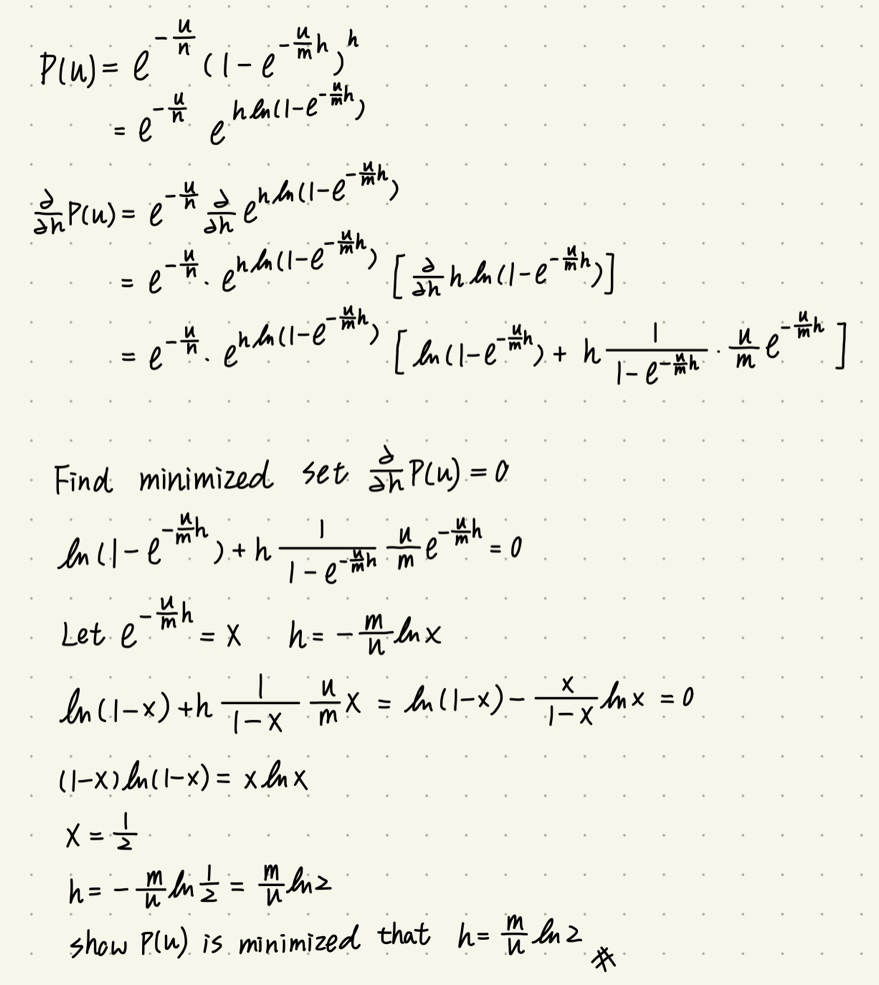 P(u) = e^{-\frac{u}{n}} (1 - e^{-\frac{u}{m}h})^h
= e^{-\frac{u}{n}} e^{h ln(1-e^{-\frac{u}{m}h})}
\frac{∂}{∂h} P(u) = e^{-\frac{u}{n}} \frac{∂}{∂h} e^{h ln(1-e^{-\frac{u}{m}h})}
= e^{-\frac{u}{n}} · e^{h ln(1-e^{-\frac{u}{m}h})} [\frac{∂}{∂h} h ln(1-e^{-\frac{u}{m}h})]
= e^{-\frac{u}{n}} · e^{h ln(1-e^{-\frac{u}{m}h})} [ln(1-e^{-\frac{u}{m}h}) + h \frac{1}{1-e^{-\frac{u}{m}h}} · \frac{u}{m} e^{-\frac{u}{m}h}]
Find minimized set \frac{∂}{∂h} P(u) = 0
ln(1-e^{-\frac{u}{m}h}) + h \frac{1}{1-e^{-\frac{u}{m}h}} \frac{u}{m} e^{-\frac{u}{m}h} = 0
Let e^{-\frac{u}{m}h} = x h = -\frac{m}{u} ln x
ln(1-x) + h \frac{1}{1-x} \frac{u}{m} x = ln(1-x) - \frac{x}{1-x} ln x = 0
(1-x) ln(1-x) = x ln x
x = \frac{1}{2}
h = -\frac{m}{u} ln \frac{1}{2} = \frac{m}{u} ln 2
show P(u) is minimized that h = \frac{m}{u} ln 2 #